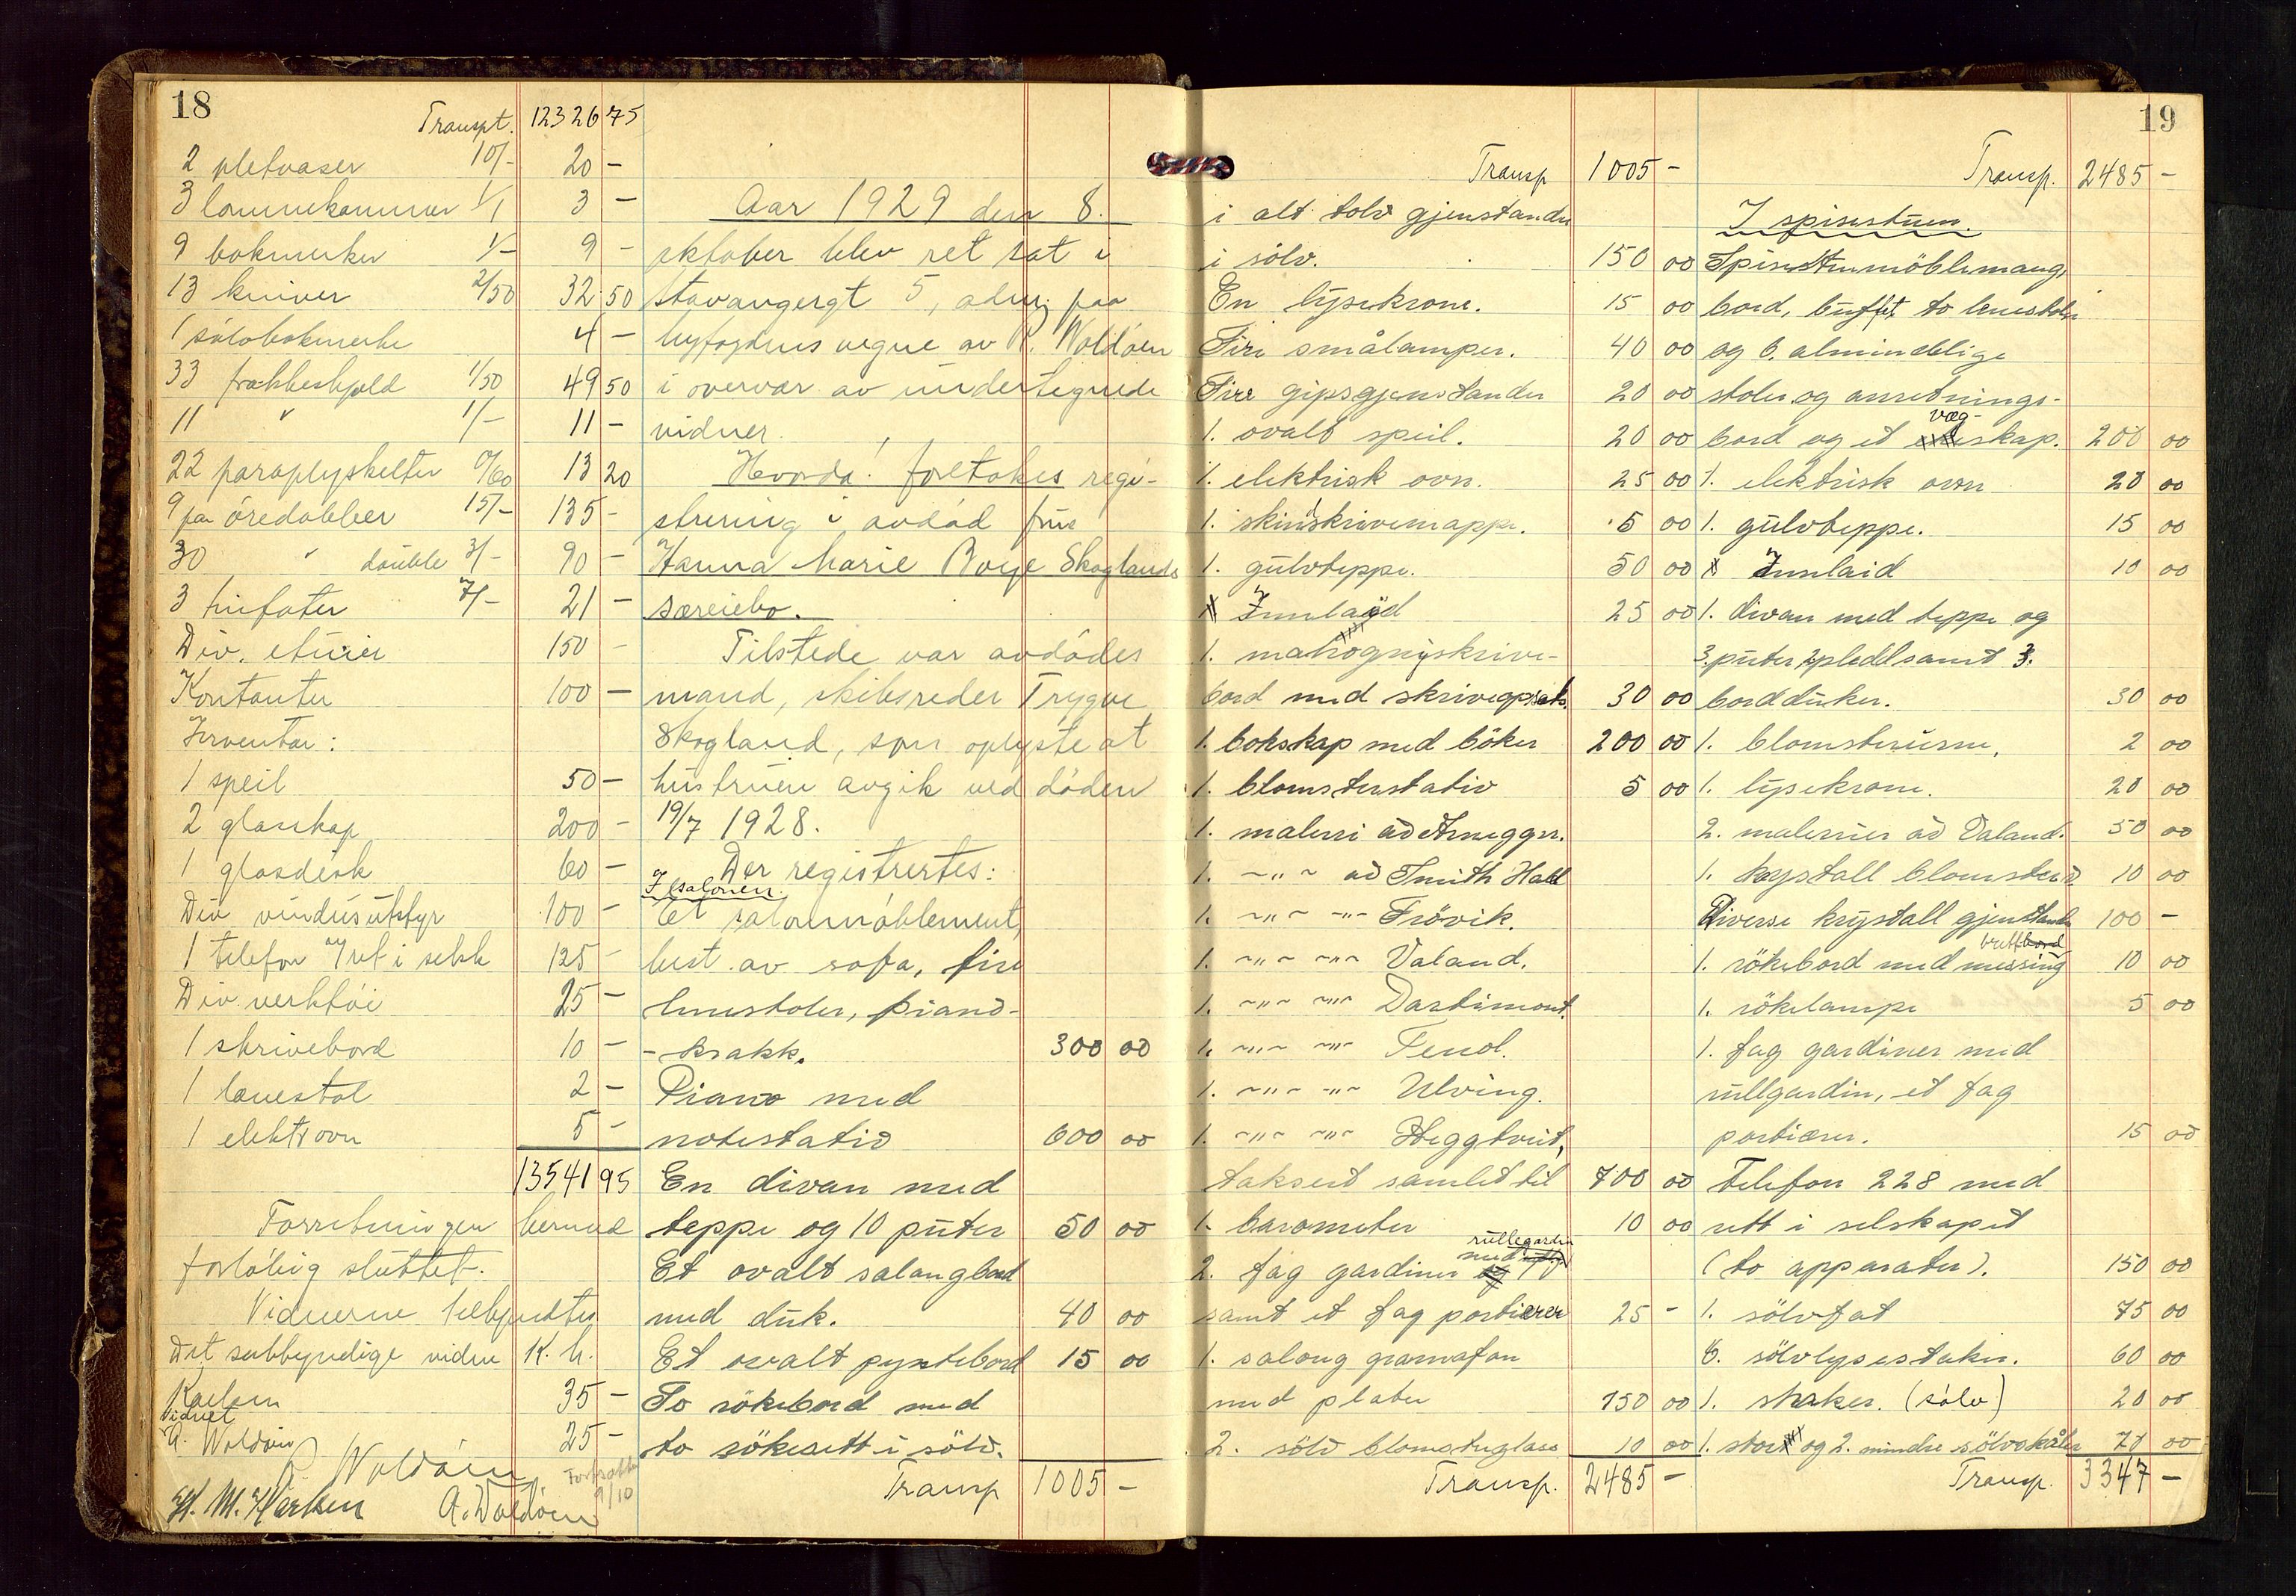 18
Transpt. 12326 75
2 pletvaser 10/- 20 -
3 lommekammer 1/ 3 -
9 bokmerker 1/- 9 -
13 kniver 2/50 32 50
1 sølvbokmerke 4 -
33 frakkeskjold 1/50 49 50
11 " 1/- 11 -
22 paraplyskelter 0/60 13 20
9 par øredobber 15/- 135 -
30 " double 3/- 90 -
3 tinfater 7/- 21 -
Div. etuier 150 -
Kontanter 100 -
Inventar:
1 speil 50 -
2 glasskap 200 -
1 glasdisk 60 -
Div vindusutstyr 100 -
1 telefon m/ret i selsk 125 -
Div. verktøi 25 -
1 skrivebord 10 -
1 lænestol 2 -
1 elektr ovn 5 -
13541 95
Forretningen hermed
foreløbig sluttet.
Vidnerne tilkjendtes
Det sakkyndige vidne K. h.
Karlsen 35 -
Vidnet
A. Woldøen 25 -
R. Woldøen
A. Woldøen
Fortsættes
9/10
Aar 1929 den 8.
oktober blev ret sat i
Stavangergt 5, adm. paa
byfogdens vegne av R. Woldøen
i overvær av undertegnede
vidner.
Hvorda! foretokes regi-
strering i avdød frue
Hanna Marie Boye Skoglands
særeiebo.
Tilstede var avdødes
mand, skibsreder Trygve
Skogland, som oplyste at
hustruen avgik ved døden
19/7 1928.
Der registrertes:
I salonen.
Et salonmøblement,
best. av sofa, fire
lenestoler, piano-
-krakk. 300 00
Piano med
notestativ 600 00
En divan med
teppe og 10 puter 50 00
Et ovalt salongbord
med duk. 40 00
Et ovalt pyntebord 15 00
To rökebord med
to rökesett i sölv.
Transp 1005 -
19
Transp 1005 -
i alt tolv gjenstander
i sölv. 150 00
En lysekrone. 15 00
Fire smålamper. 40 00
Fire gipsgjenstander 20 00
1. ovalt speil. 20 00
1. elektrisk ovn. 25 00
1. skinnskrivemappe. 5 00
1. gulvteppe. 50 00
Innlaid 25 00
1. mahognyskrive-
bord med skriveopsats. 30 00
1. bokskap med böker 200 00
1. blomsterstativ 5 00
1. maleri av Arnegger.
1. -"- av Smith Hald
1. -"- -"- Frövik.
1. -"- -"- Valand.
1. -"- -"- Dastimont.
1. -"- -"- Fenol.
1. -"- -"- Ulving.
1. -"- -"- Heggtveit,
taksert samlet til 700 00
1. barometer 10 00
rullegardin
2. fag gardiner med
samt et fag portierer 25 -
1. salong gramafon
med plater 150 00
2. sölv blomsterglass 10 00
Transp. 2485 -
Transp. 2485 -
I spisestuen.
Spisestuemöblemang,
bord, buffet, to lenestoler
og 6. almindelige
stoler og anretnings-
væg-
bord og et skap. 200 00
1. elektrisk ovn 20 00
1. gulvteppe. 15 00
Innlaid 10 00
1. divan med teppe og
3. puter 2 pledd samt 3.
bordduker. 30 00
1. blomsterurne. 2 00
1. lysekrone. 20 00
2. malerier av Valand. 50 00
1. krystall blomsterv. 10 00
Diverse krystall gjenstander 100 -
brettbord
1. rökebord med messing 10 00
1. rökelampe 5 00
1. fag gardiner med
rullgardin, et fag
portierer. 15 00
Telefon 228 med
rett i selskapet
(to apparater). 150 00
1. sölvfat 75 00
6. sölvlysestaker. 60 00
1. shaker. (sølv) 20 00
1. stor og 2. mindre sölvskåler 70 00
Transp. 3347 -